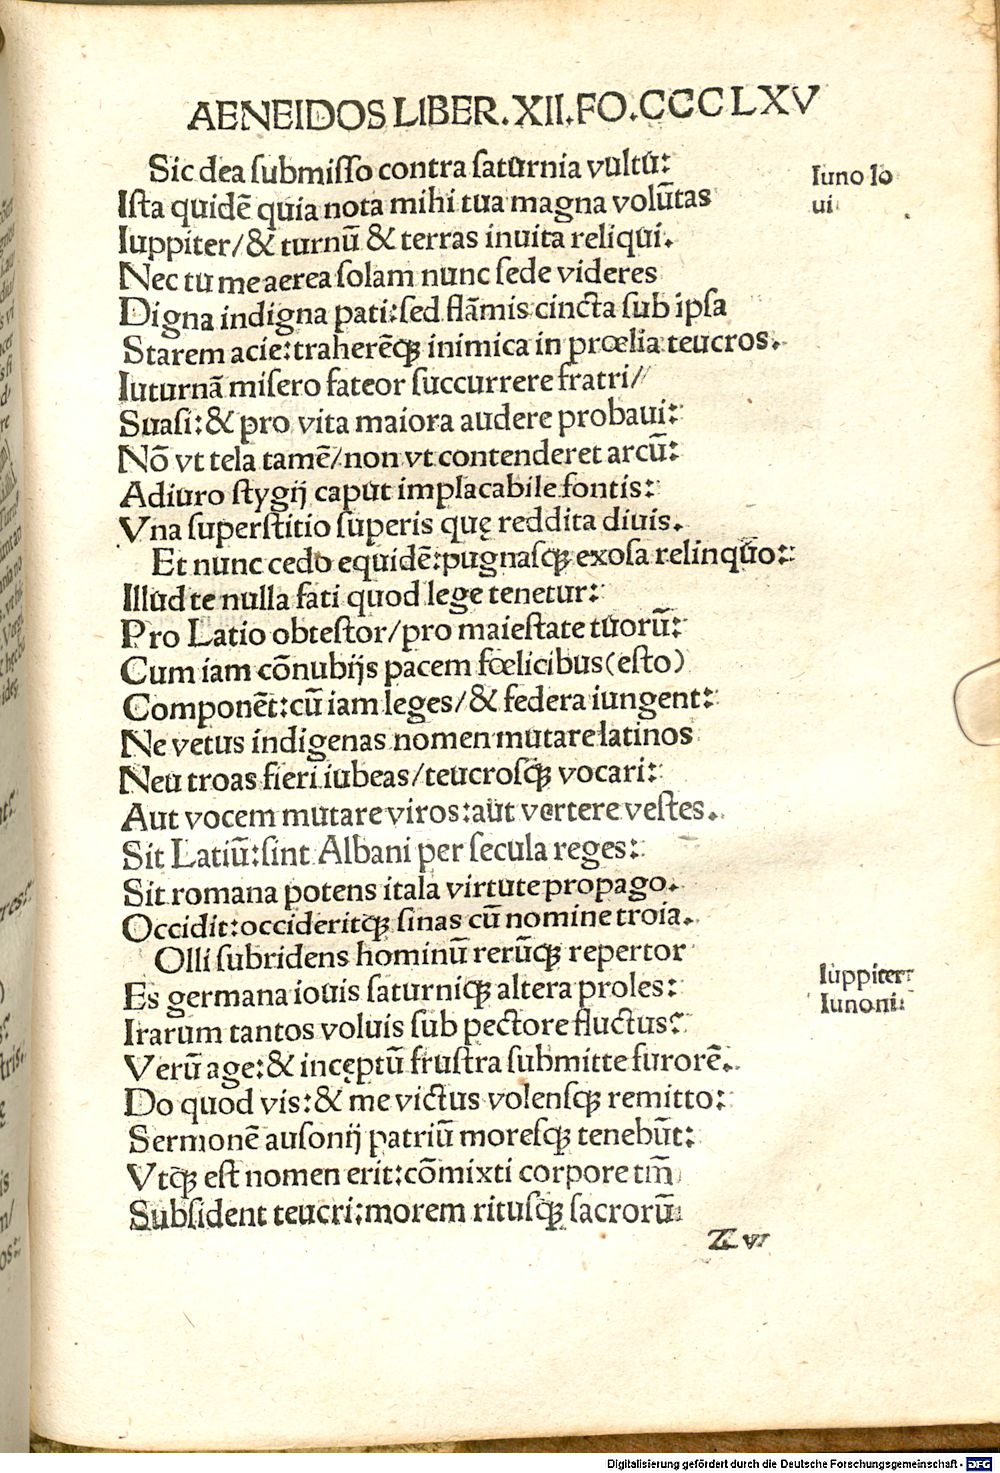 AENEIDOS LIBER.XII.FO.CCCLXV
Sic dea submisso contra saturnia vultu:
Iuno Io
ui
Ista quidē quia nota mihi tua magna volūtas
Iuppiter/& turnū & terras inuita reliqui.
Nec tu me aerea solam nunc sede videres
Digna indigna pati:sed flāmis cincta sub ipsa
Starem acie:traherēꝙ inimica in prœlia teucros.
Iuturnā misero fateor succurrere fratri/
Suasi:& pro vita maiora audere probaui:
Nō vt tela tamē/non vt contenderet arcū:
Adiuro stygij caput implacabile fontis:
Vna superstitio superis quę reddita diuis.
Et nunc cedo equidē:pugnasꝙ exosa relinquo:
Illud te nulla fati quod lege tenetur:
Pro Latio obtestor/pro maiestate tuorū:
Cum iam cōnubijs pacem fœlicibus(esto)
Componēt:cū iam leges/& federa iungent:
Ne vetus indigenas nomen mutare latinos
Neu troas fieri iubeas/teucrosꝙ vocari:
Aut vocem mutare viros:aut vertere vestes.
Sit Latiū:sint Albani per secula reges:
Sit romana potens itala virtute propago.
Occidit:occideritꝙ sinas cū nomine troia.
Olli subridens hominū rerūꝙ repertor
Iuppiter
Iunoni:
Es germana iouis saturniꝙ altera proles:
Irarum tantos voluis sub pectore fluctus:
Verū age:& incęptū frustra submitte furorē.
Do quod vis:& me victus volensꝙ remitto:
Sermonē ausonij patriū moresꝙ tenebūt:
Vtꝙ est nomen erit:cōmixti corpore tm̄
Subsident teucri:morem ritusꝙ sacrorū
Z v
Digitalisierung gefördert durch die Deutsche Forschungsgemeinschaft - DFG